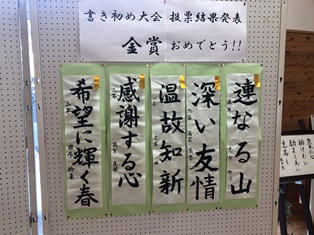 書き初め大会 投票結果発表
金賞 おめでとう!!
連なる山
深い友情
温故知新
感謝する心
希望に輝く春